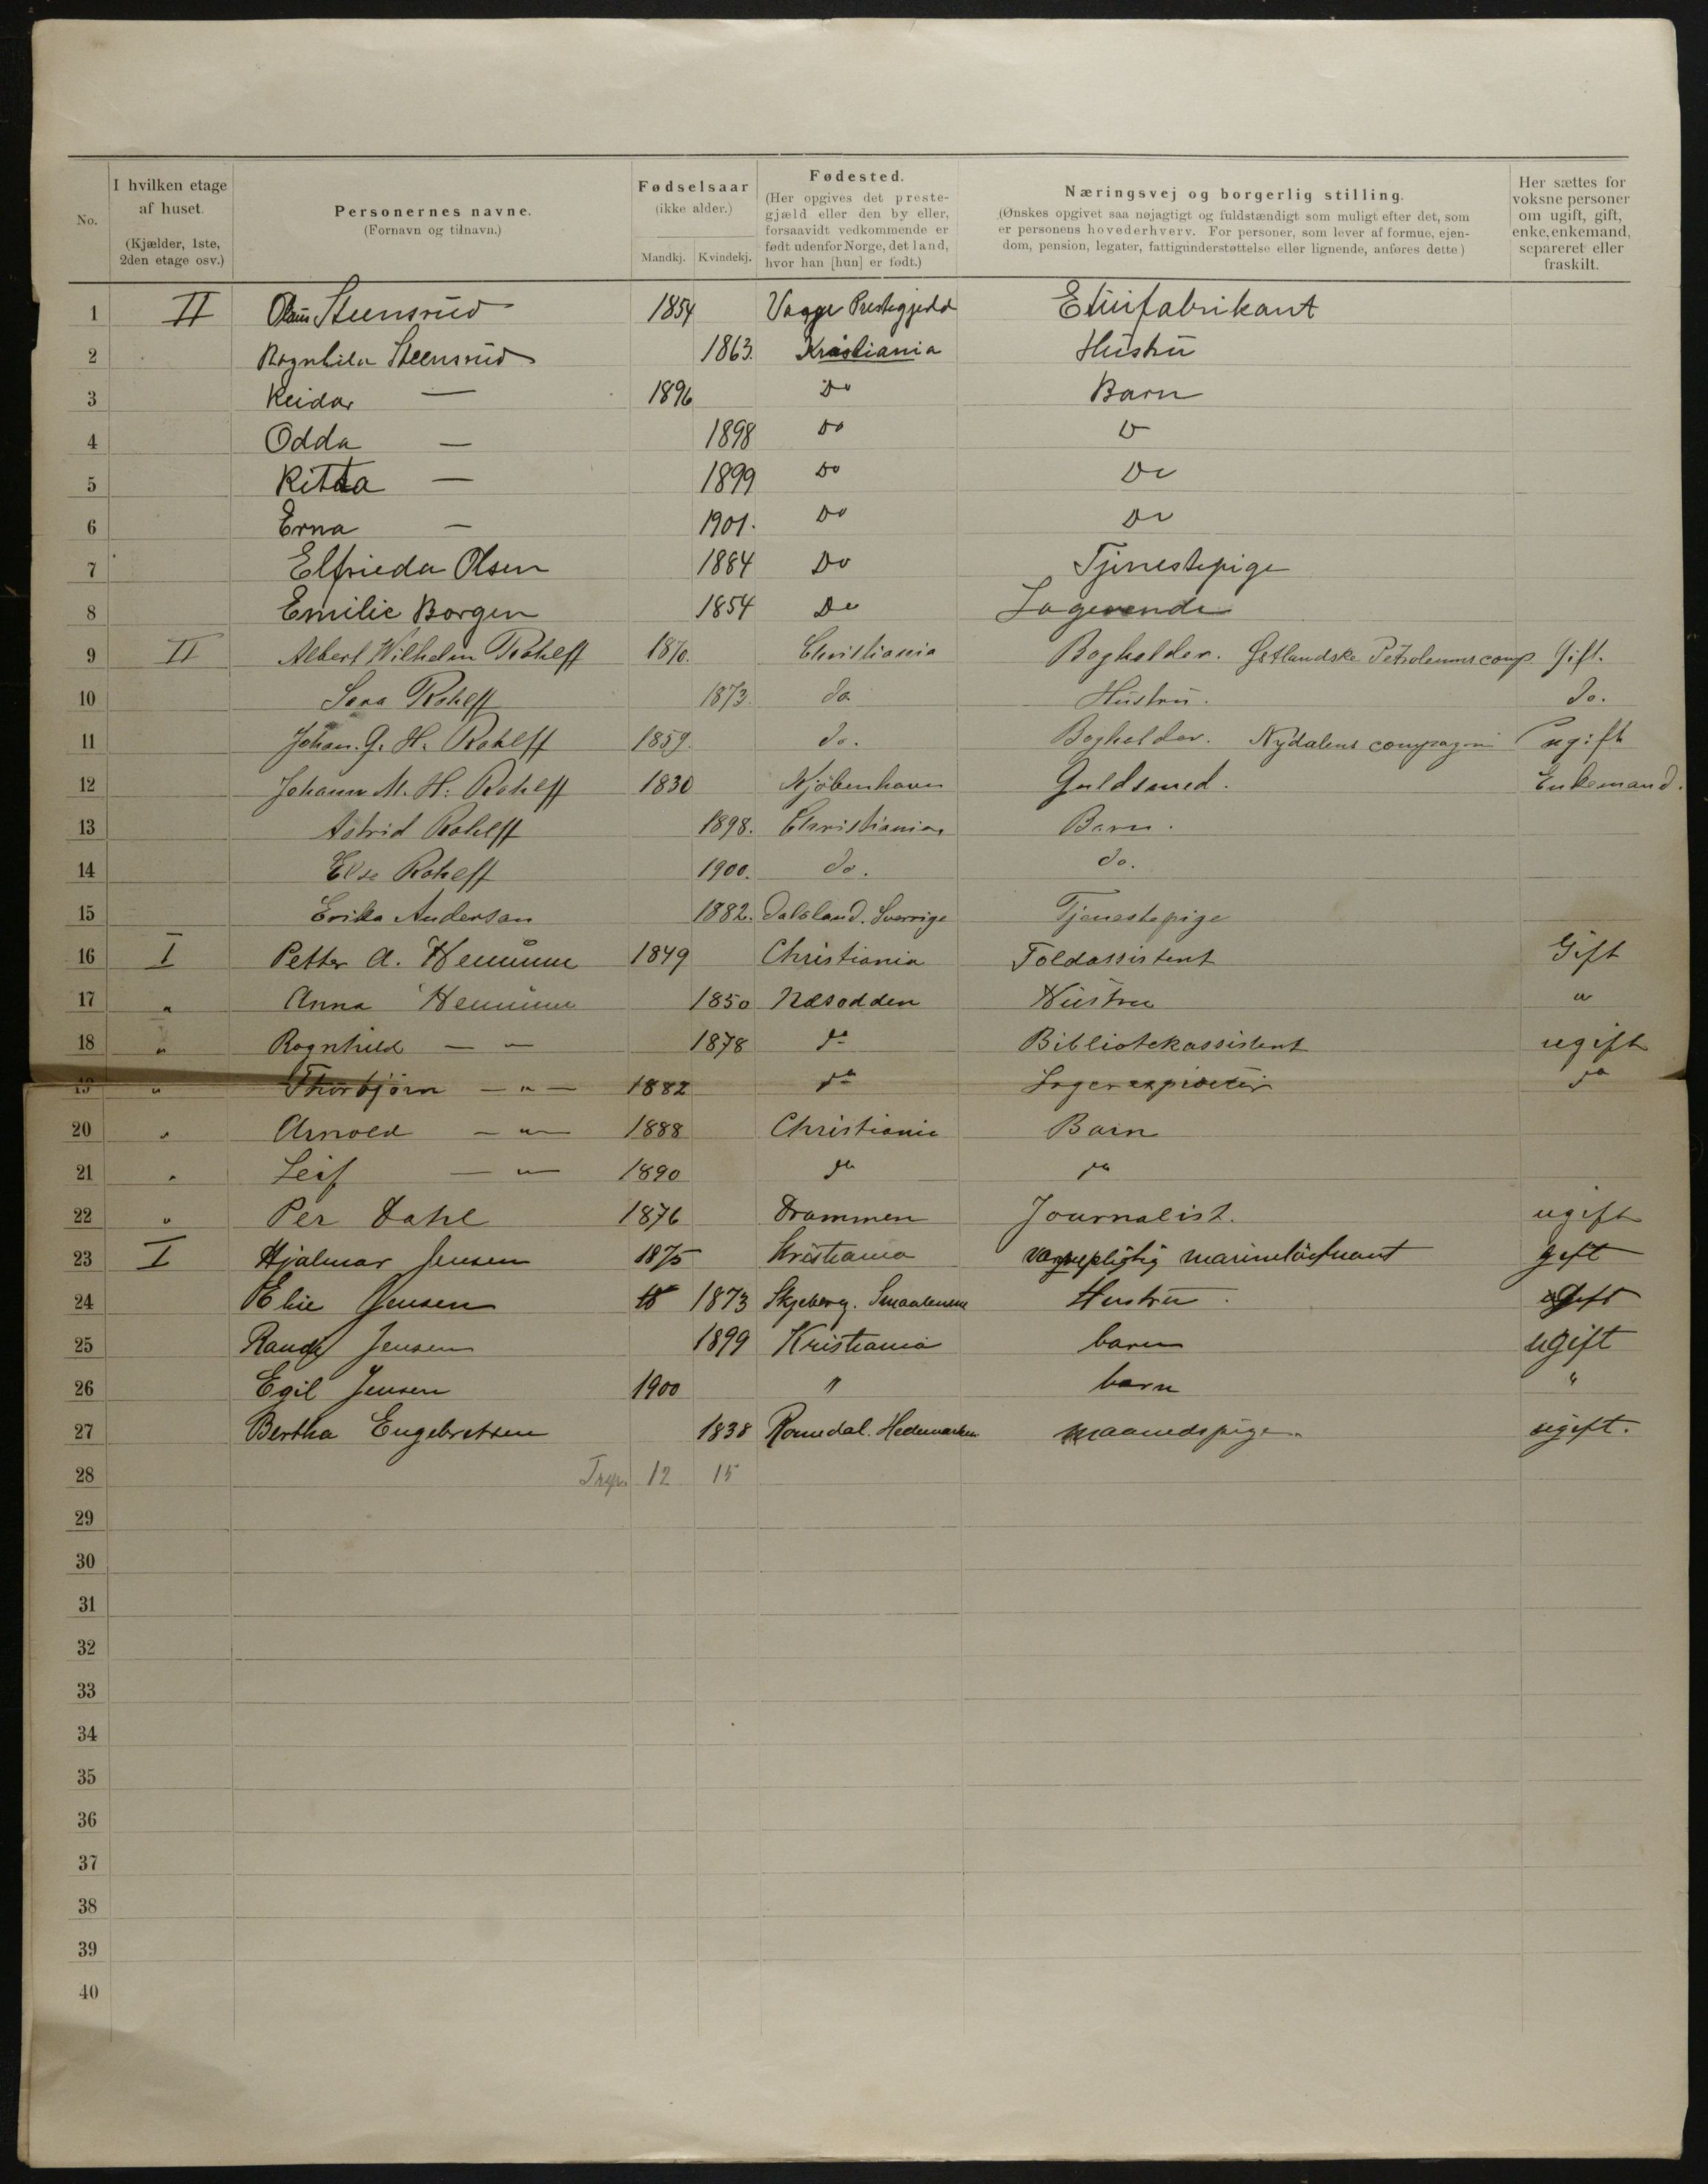 No.
I hvilken etage af huset. (Kjælder, 1ste, 2den etage osv.)
Personernes navne. (Fornavn og tilnavn.)
Fødselsaar (ikke alder.) Mandkj. Kvindekj.
Fødested. (Her opgives det prestegjæld eller den by eller, forsaavidt vedkommende er født udenfor Norge, det land, hvor han [hun] er født.)
Næringsvej og borgerlig stilling. (Ønskes opgivet saa nøjagtigt og fuldstændigt som muligt efter det, som er personens hovederhverv. For personer, som lever af formue, ejendom, pension, legater, fattigunderstøttelse eller lignende, anføres dette.)
Her sættes for voksne personer om ugift, gift, enke, enkemand, separeret eller fraskilt.
1 II Olaus Steensrud 1854 Etuifabrikant
2 Ragnhild Steensrud 1863. Kristiania Hustru
3 Reidar — 1896 Do Barn
4 Odda — 1898 Do D
5 Ritta — 1899 Do Do
6 Erna — 1901. Do Do
7 Elfrieda Olsen 1884 Do Tjenestepige
8 Emilie Borgen 1854 Do
9 II Albert Wilhelm Rohlff 1870. Christiania Bogholder. Østlandske Petroleumscomp. Gift.
10 Sara Rohlff 1873. do Hustru. do.
11 Johan. G. H. Rohlff 1859. do. Bogholder. Nydalens compagni ugift
12 Johann M. H. Rohlff 1830 Kjöbenhavn Guldsmed. Enkemand.
13 Astrid Rohlff 1898. Christiania Barn.
14 Else Rohlff 1900. do. do.
15 Erika Anderson 1882. Dalsland. Sverrige Tjenestepige
16 I Petter A. 1849 Christiania Toldassistent Gift
17 " Anna 1850 Næsodden Hustru "
18 " Ragnhild — " — 1878 do Bibliotekassistent ugift
19 " Thorbjörn — " — 1882 do do
20 " Arnold — " — 1888 Christiania Barn
21 " Leif — " — 1890 do do
22 " Per Dahl 1876 Drammen Journalist. ugift
23 I Hjalmar Jensen 1875 Kristiania værnepligtig marinelöitnant gift
24 Elise Jensen 18 1873 Skjeberg. Smaalenene Hustru. gift
25 Randi Jensen 1899 Kristiania barn ugift
26 Egil Jensen 1900 " barn "
27 Bertha Engebretsen 1838 Romedal. Hedemarken maanedspige. ugift.
28 12 15
29
30
31
32
33
34
35
36
37
38
39
40